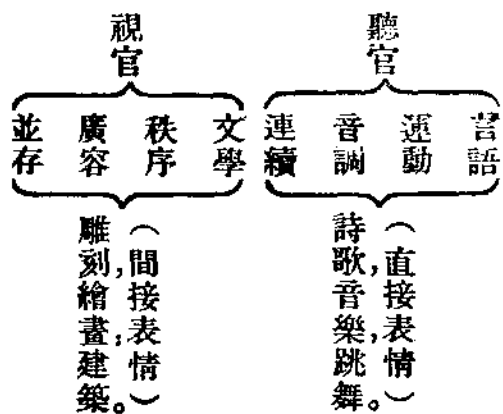 聽官
言語
運動
音調
連續
（直接表情）
詩歌，音樂，跳舞。
視官
文學
秩序
廣容
並存
（間接表情）
雕刻，繪畫，建築。